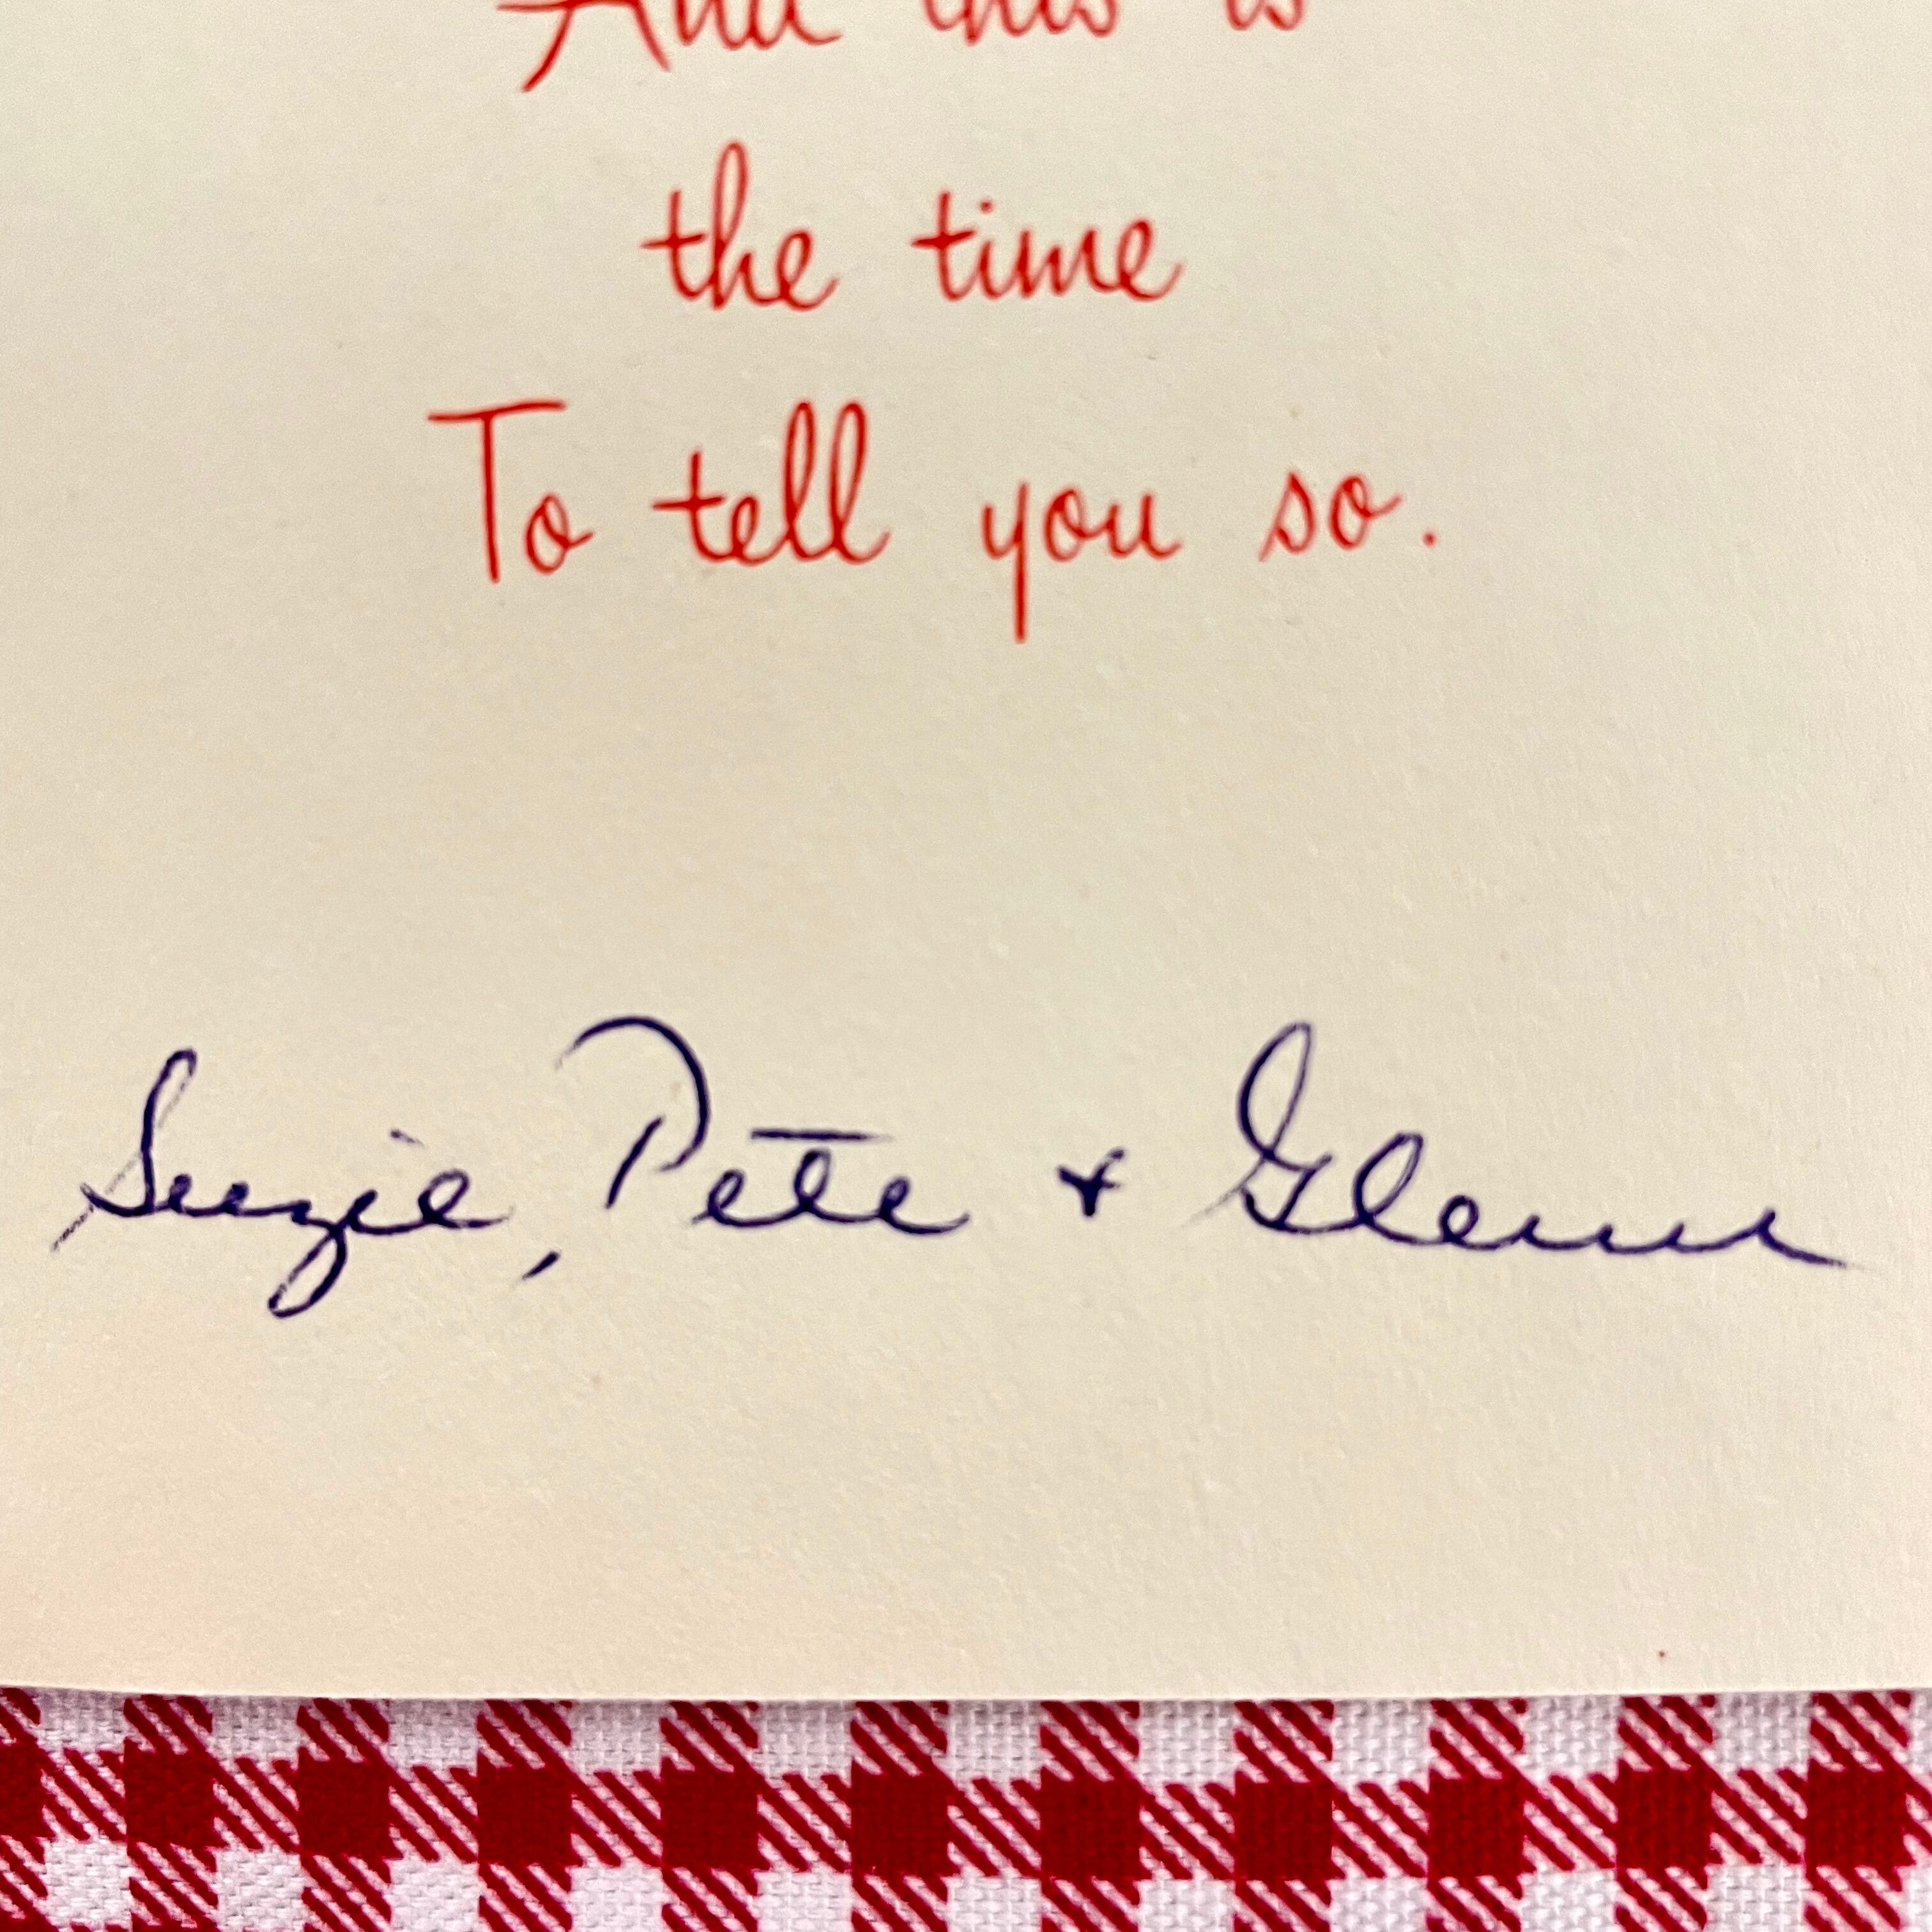 And this is
the time
To tell you so.
Suzie, Pete + Glenn